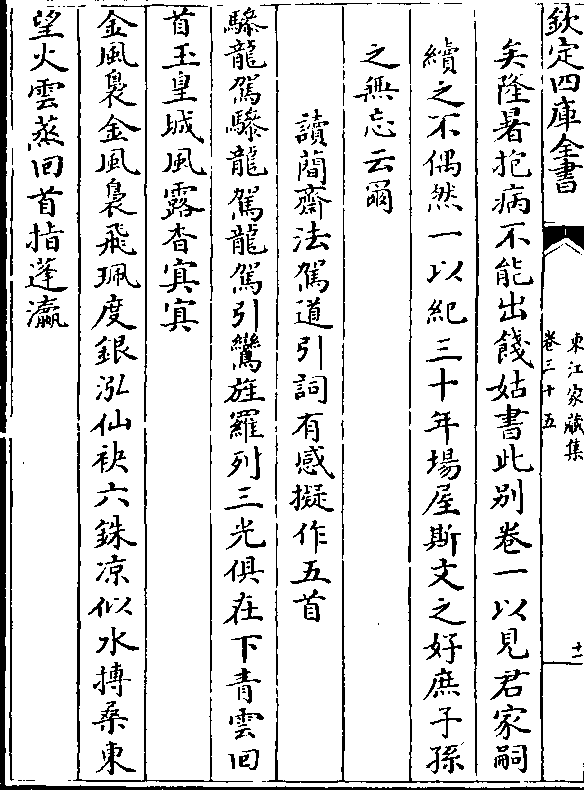 欽定四庫全書
東江家藏集
卷三十五
十一
矣隆暑抱病不能出餞姑書此别卷一以見君家嗣
續之不偶然一以紀三十年場屋斯文之好庶子孫
之無忘云爾
讀簡齋法駕道引詞有感擬作五首
驂龍駕驂龍駕龍駕引鸞旌羅列三光俱在下青雲回
首玉皇城風露杳冥冥
金風裊金風裊飛珮度銀泓仙袂六銖凉似水摶桑東
望火雲蒸回首指蓬瀛